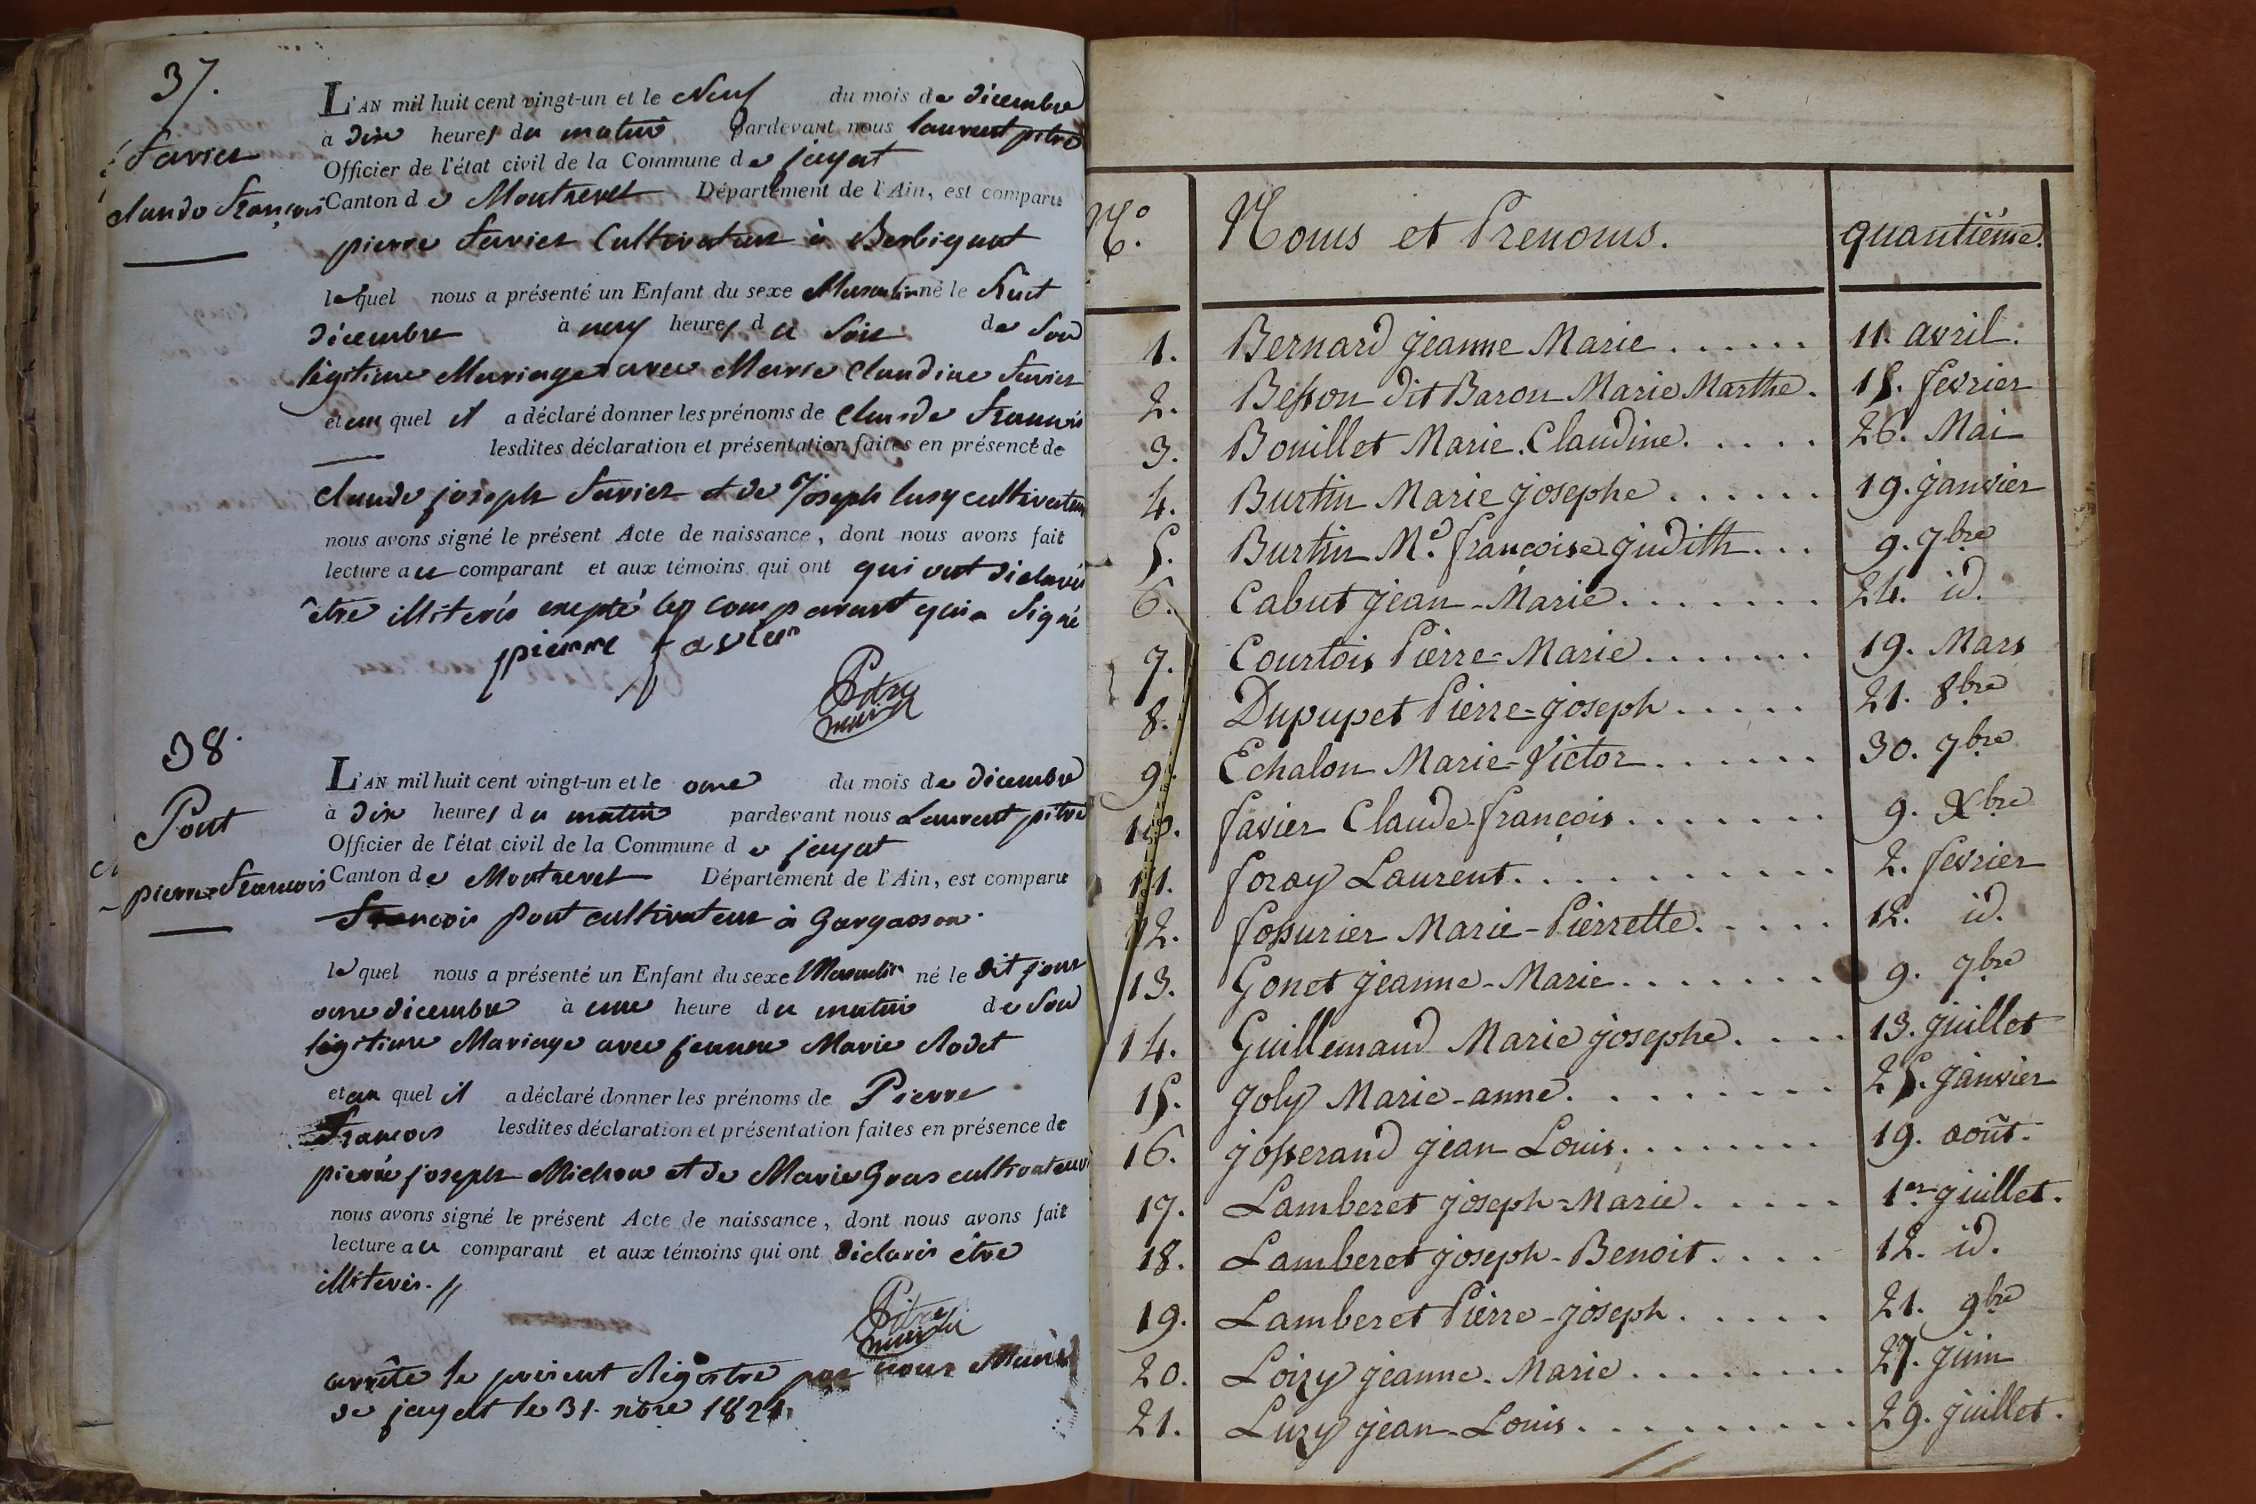 37.
Favier
claude François
L'AN mil huit cent vingt-un et le Neuf du mois de décembre
à dix heures du matin pardevant nous laurent pitre
Officier de l'état civil de la Commune de jayat
Canton de Montrevel Département de l'Ain, est comparu
pierre Favier Cultivateur à Berbignat
lequel nous a présenté un Enfant du sexe Masculin né le huit
décembre à neuf heures du soir de son
légitime Mariage avec Marie Claudine Favier
et au quel il a déclaré donner les prénoms de claude François
lesdites déclaration et présentation faites en présence de
claude joseph Favier et de joseph luzy cultivateurs
nous avons signé le présent Acte de naissance, dont nous avons fait
lecture au comparant et aux témoins qui ont qui ont déclarés
être illiterés excepté le comparant qui a signé
pierre favier
Pitre
maire
38.
Pont
pierre François
L'AN mil huit cent vingt-un et le onze du mois de décembre
à dix heures du matin pardevant nous Laurent pitre
Officier de l'état civil de la Commune de jayat
Canton de Montrevel Département de l'Ain, est comparu
François Pont cultivateur à Gargasson.
lequel nous a présenté un Enfant du sexe Masculin né le dit jour
onze décembre à une heure du matin de son
légitime Mariage avec jeanne Marie Rodet
et au quel il a déclaré donner les prénoms de Pierre
François lesdites déclaration et présentation faites en présence de
pierre joseph Michon et de Marie Gras cultivateurs
nous avons signé le présent Acte de naissance, dont nous avons fait
lecture au comparant et aux témoins qui ont déclarés être
illiterés. //
Pitre
maire
arrêté le présent Régistre par nous Maire
de jayat le 31. xbre 1821.
N.º Noms et Prenoms. quantième.
1. Bernard jeanne Marie . . . . . . 11. avril.
2. Besson dit Baron Marie Marthe. 15. fevrier
3. Bouillet Marie Claudine. . . . . 26. Mai
4. Burtin Marie josephe . . . . . . 19. janvier
5. Burtin M.e françoise judith . . . 9. 7bre
6. Cabut jean-Marie . . . . . . . 24. id.
7. Courtois Pierre-Marie . . . . . . . 19. Mars
8. Dupupet Pierre-joseph . . . . . 21. 8bre
9. Echalon Marie-Victor . . . . . . 30. 7bre
10. favier Claude-françois . . . . . . . 9. Xbre
11. foray Laurent . . . . . . . . . . . 2. fevrier
12. fossurier Marie-Pierrette. . . . . 12. id.
13. Gonet jeanne-Marie . . . . . . . 9. 7bre
14. Guillemaud Marie josephe . . . . 13. juillet
15. joly Marie-anne. . . . . . . . 25. janvier
16. josserand jean Louis. . . . . . . . 19. août.
17. Lamberet joseph-Marie . . . . . 1er juillet.
18. Lamberet joseph-Benoit . . . . 12. id.
19. Lamberet Pierre-joseph . . . . . 21. 9bre
20. Loizy jeanne-Marie . . . . . . . . 27. juin
21. Luzy jean-Louis . . . . . . . . . 29. juillet.